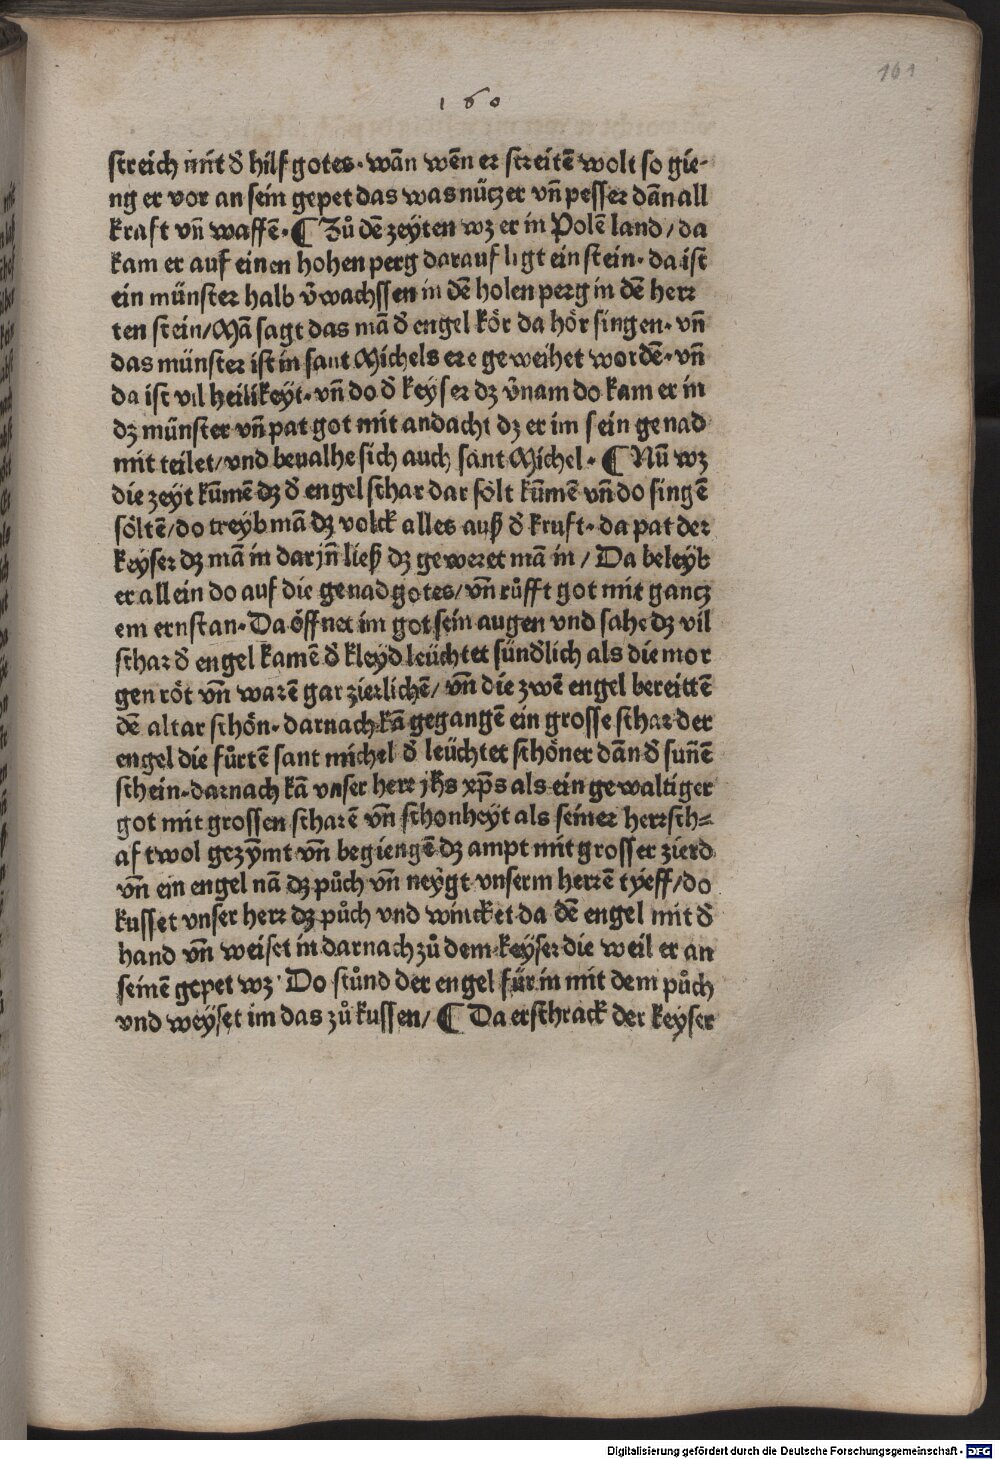 161
160
streich mit d̕ hilf gotes· wañ wen̄ er streitē wolt so gie-
ng er vor an sein gepet das was nüczer vn̄ pesser dañ all
kraft vn̄ waffē· ¶ Zů dē zeyten wꝫ er in Polē land/ da
kam er auf einen hohen perg darauf ligt ein stein· da ist
ein münster halb v̕wachssen in dē holen perg in dē herr
ten stein/ Mā sagt das mā d̕ engel kör da hör singen· vn̄
das münster ist in sant Michels ere geweihet wordē· vn̄
da ist vil heilikeyt· vn̄ do d̕ keyser dꝫ v̕nam do kam er in
dꝫ münster vn̄ pat got mit andacht dꝫ er im sein genad
mit teilet/ vnd beualhe sich auch sant Michel· ¶ Nū wꝫ
die zeyt kūmē dꝫ d̕ engel schar dar sölt kūmē vn̄ do singē
söltē/ do treyb mā dꝫ volck alles auß d̕ kruft· da pat der
keyser dꝫ mā in dar jn̄ ließ dꝫ geweret mā in/ Da beleyb
er allein do auf die genad gotes/ vn̄ růfft got mit gancz
em ernst an· Da öffnet im got sein augen vnd sahe dꝫ vil
schar d̕ engel kamē d̕ kleyd leüchtet sünd̕lich als die mor
gen röt vn̄ warē gar zierlichē/ vn̄ die zwē engel bereittē
dē altar schön· darnach kā gegangē ein grosse schar der
engel die fůrtē sant michel d̕ leüchtet schöner dañ d̕ suñē
schein· darnach kā vnser herr jh̄s xp̄s als ein gewaltiger
got mit grossen scharē vn̄ schonheyt als seiner herrsch=
aft wol gezȳmt vn̄ begiengē dꝫ ampt mit grosser zierd
vn̄ ein engel nā dꝫ půch vn̄ neygt vnserm herrē tyeff/ do
kusset vnser herr dꝫ půch vnd wincket da dē engel mit d̕
hand vn̄ weiset in darnach zů dem keyser die weil er an
seinē gepet wꝫ· Do stůnd der engel für in mit dem půch
vnd weyset im das zů kussen/ ¶ Da erschrack der keyser
Digitalisierung gefördert durch die Deutsche Forschungsgemeinschaft - DFG